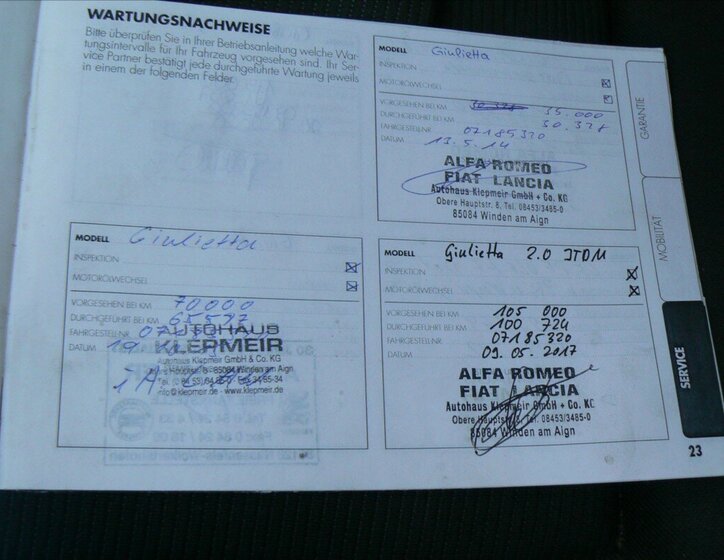 WARTUNGSNACHWEISE
Bitte überprüfen Sie in Ihrer Betriebsanleitung welche War-
tungsintervalle für Ihr Fahrzeug vorgesehen sind. Ihr Ser-
vice Partner bestätigt jede durchgeführte Wartung jeweils
in einem der folgenden Felder.
MODELL Giulietta
INSPEKTION
MOTORÖLWECHSEL
VORGESEHEN BEI KM 30.328 35.000
DURCHGEFÜHRT BEI KM 30.328
FAHRGESTELLNR 07185320
DATUM 13.5.14
ALFA ROMEO
FIAT LANCIA
Autohaus Klepmeir GmbH + Co. KG
Obere Hauptstr. 8, Tel. 08453/3485-0
85084 Winden am Aign
MODELL Giulietta
INSPEKTION
MOTORÖLWECHSEL
VORGESEHEN BEI KM 70000
DURCHGEFÜHRT BEI KM
FAHRGESTELLNR
DATUM
AUTOHAUS
KLEPMEIR
Autohaus Klepmeir GmbH & Co. KG
85084 Winden am Aign
info@klepmeir.de - www.klepmeir.de
MODELL Giulietta 2.0 JTDM
INSPEKTION
MOTORÖLWECHSEL
VORGESEHEN BEI KM 105 000
DURCHGEFÜHRT BEI KM 100 724
FAHRGESTELLNR 07185320
DATUM 09.05.2017
ALFA ROMEO
FIAT LANCIA
Autohaus Klepmeir GmbH + Co. KG
Obere Hauptstr. 8, Tel. 08453/3485-0
85084 Winden am Aign
GARANTIE
MOBILITÄT
SERVICE
23